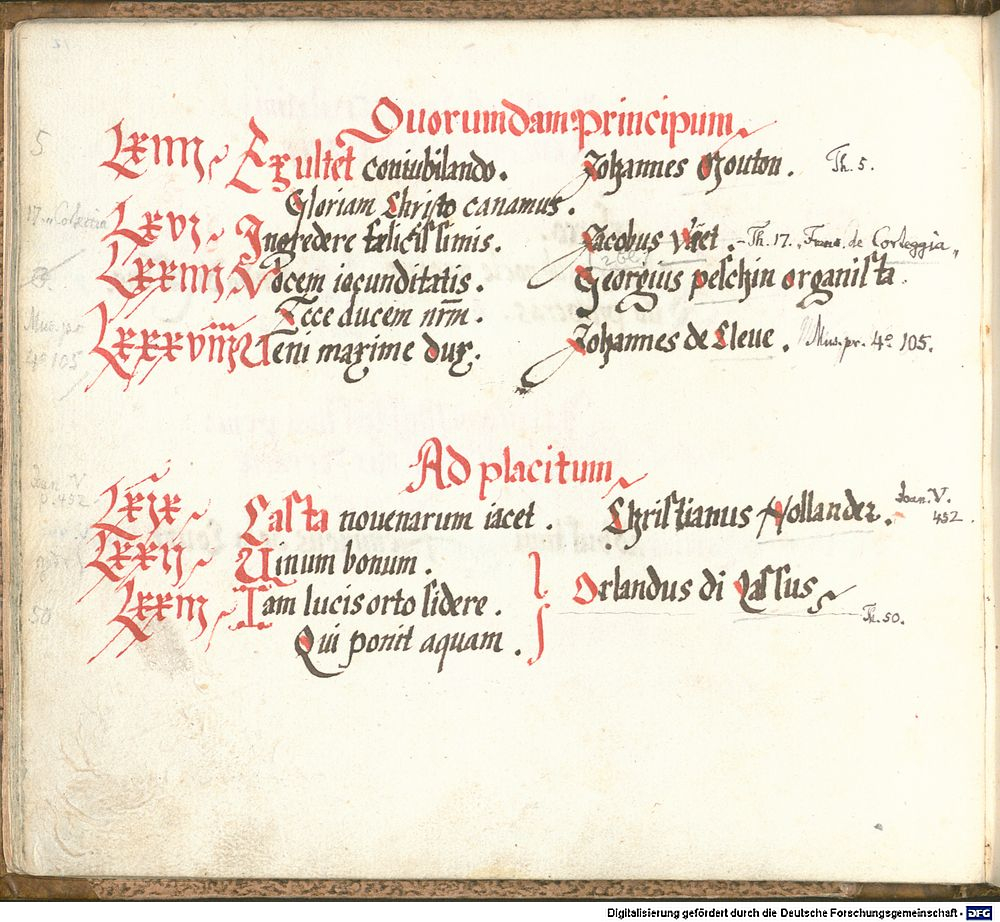 Quorumdam principum
5 LXIIII Exultet coniubilando. Johannes Mouton. Th. 5.
Gloriam Christo canamus.
LXVI Ingredere felicissimis. Jacobus Vaet. - Th. 17. „Franc. de Corteggia„
LXXIIII Vocem iocunditatis. Georgius peschin organista.
Ecce ducem nrm̄.
LXXXVIIII Veni maxime dux. Johannes de Cleue. Mus. pr. 4º 105.
Ad placitum
LXIX Casta nouenarum iacet. Christianus Hollander. Joan. V. 452.
LXXII Vinum bonum.
Orlandus di Lassus
LXXIII Iam lucis orto sidere. Th. 50.
Qui ponit aquam.
Digitalisierung gefördert durch die Deutsche Forschungsgemeinschaft - DFG